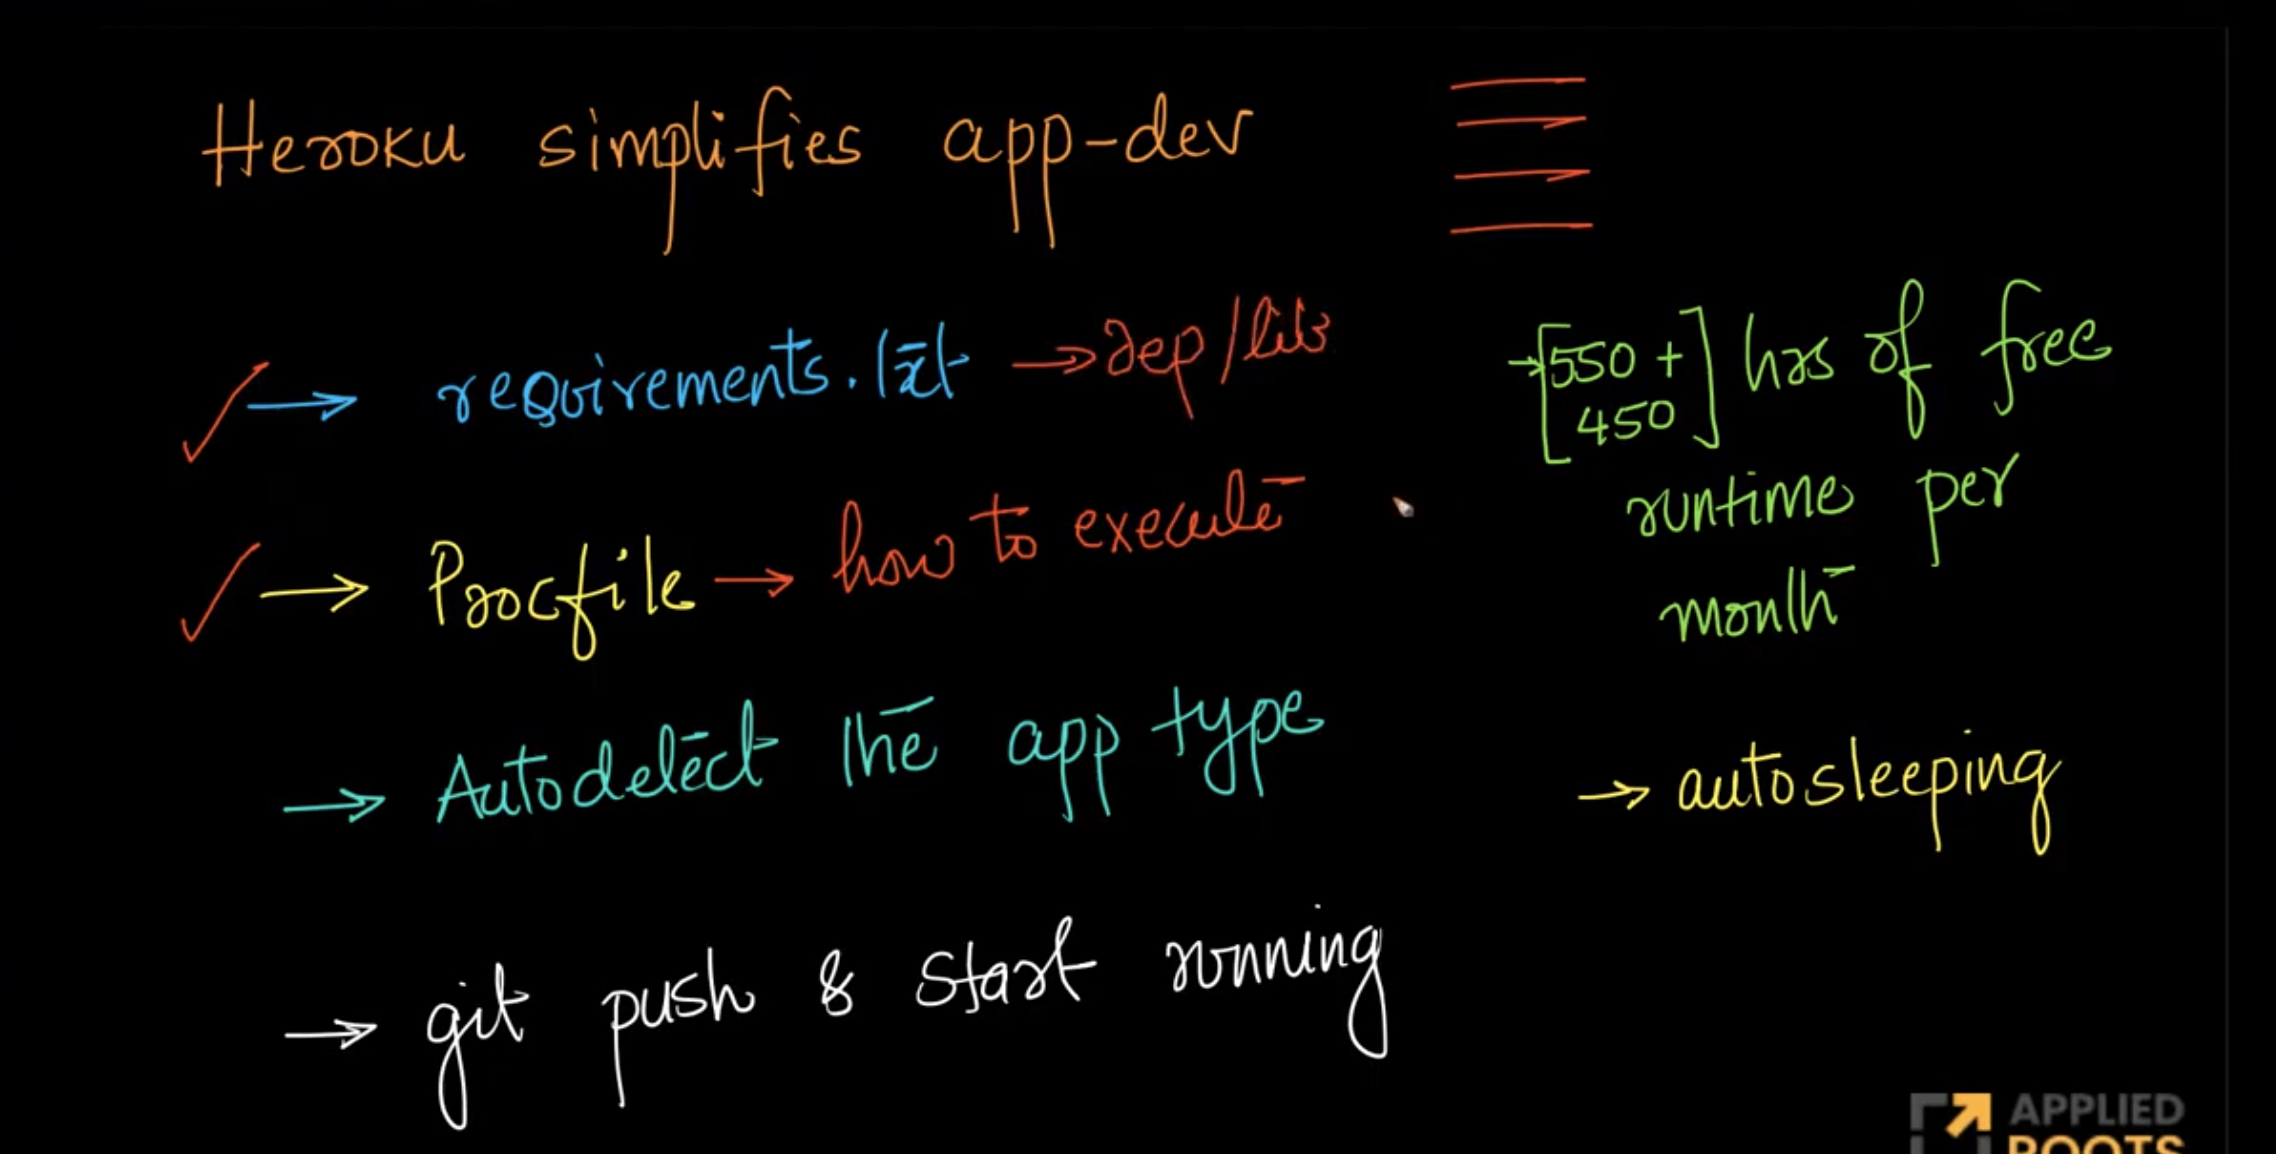 Heroku simplifies app-dev
→ requirements.txt → dep/lib
→ Procfile → how to execute
→ Autodetect the app type
→ git push & start running
→ [550 + 450] hrs of free
runtime per
month
→ autosleeping
APPLIED
ROOTS